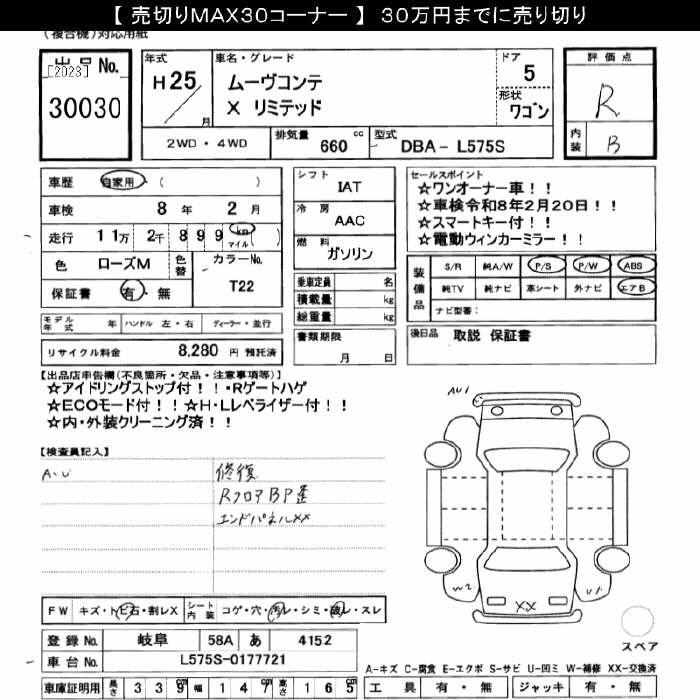 【 売切りMAX30コーナー 】 30万円までに売り切り
(複合機)対応用紙
出品No.
[2023]
30030
年式
H25
月
車名・グレード
ムーヴコンテ
X リミテッド
ドア
5
形状
ワゴン
評価点
R
内装
B
2WD・4WD
排気量
660 cc
型式
DBA- L575S
車歴 自家用 ( )
車検 8 年 2 月
走行 11万 2千 8 9 9 km マイル ( )
色 ローズM 色替
カラーNo.
T22
保証書 有・無
シフト
IAT
冷房
AAC
燃料
ガソリン
乗車定員 名
積載量 kg
総重量 kg
セールスポイント
☆ワンオーナー車！！
☆車検令和8年2月20日！！
☆スマートキー付！！
☆電動ウィンカーミラー！！
装備品
S/R 純A/W P/S P/W ABS
純TV 純ナビ 革シート 外ナビ エアB
ナビ型番( )
モデル年式 年 ハンドル 左・右 ディーラー・並行
リサイクル料金 8,280 円 預託済
書類期限
月 日
後日品 取説 保証書
【出品店申告欄(不良箇所・欠品・注意事項等)】
☆アイドリングストップ付！！・Rゲートハゲ
☆ECOモード付！！☆H・Lレベライザー付！！
☆内・外装クリーニング済！！
【検査員記入】
A・U
修復
RフロアBP歪
エンドパネルXX
AU1
W2
U1
XX
FW キズ・トビ石・割レX
シート内装 コゲ・穴・汚レ・シミ・破レ・スレ
登録No. 岐阜 58A あ 4152
車台No. L575S-0177721
車庫証明用 長さ 3 3 9 cm 幅 1 4 7 cm 高さ 1 6 5 cm
スペア
A-キズ C-腐食 E-エクボ S-サビ U-凹ミ W-補修 XX-交換済
工具 有・無 ジャッキ 有・無